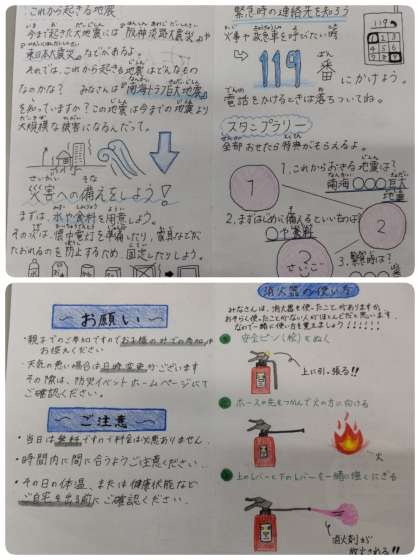 これから起きる地震
今まで起きた大地震には『阪神淡路大震災』や
『東日本大震災』などがあるよ。
それでは、これから起きる地震はどんなもの
なのかな？ みなさんは『南海トラフ巨大地震』
を知っていますか？この地震は今までの地震より
大規模な被害になるんだって。
災害への備えをしよう！
まずは、水や食料を用意しよう。
その次は、懐中電灯を準備したり、家具などが
たおれるのを防止するため、固定したりしよう。
緊急時の連絡先を知ろう
火事や救急車を呼びたい時
119番
にかけよう。
電話をかけるときは落ちついてね。
119
スタンプラリー
全部おせたら特典がもらえるよ。
1.これからおきる地震は？
南海○○○巨大
地震
1
2.まずはじめに備えるといいものは？
○や食料
2
3
さいごに
3.緊急時は？
〜お願い〜
・親子でのご参加ですのでお子様のみでの参加は
お控えください
・天気の悪い場合は日時変更がございます
その際は、防災イベントホームページにて
ご確認ください。
〜ご注意〜
・当日は無料ですので料金は必要ありません。
・時間内に間に合うようご注意ください。
・その日の体温、または健康状態など
ご自宅を出る前にご確認ください。
消火器の使い方
みなさんは、消火器を使ったことがありますか。
おそらく使ったことがない人がほとんどだと思います。
なので一緒に使い方を覚えましょう!!!!!!
安全ピン(栓)をぬく
上に引っ張る!!
ホースの先をつかんで火の方に向ける
火
上のレバーと下のレバーを一緒に強くにぎる
消火剤が
放出される!!